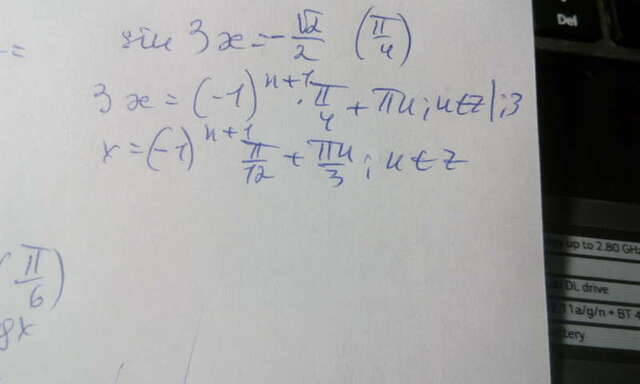 Del
=
sin 3x = -√2/2 (π/4)
3x = (-1)^{n+1} · π/4 + πn; n∈z |:3
x = (-1)^{n+1} π/12 + πn/3; n∈z
(π/6)
gx
up to 2.80 GHz
DL drive
11a/g/n + BT 4